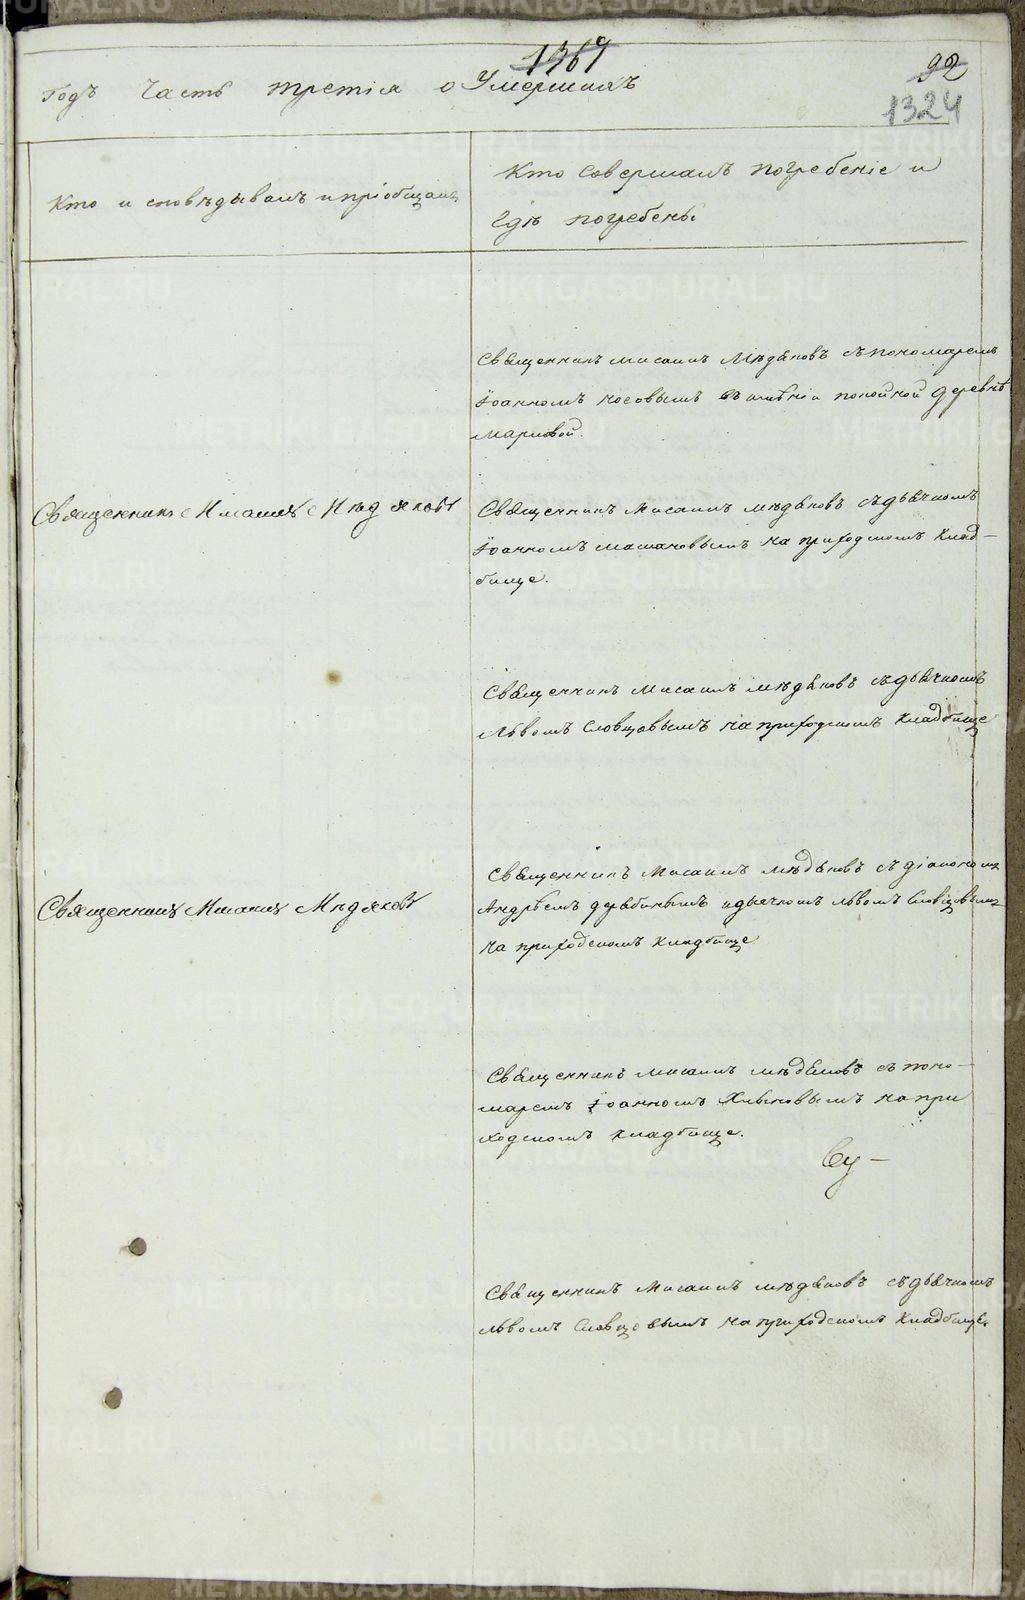 1369
92
1324
Годъ Часть третія о Умершихъ
Кто исповѣдывалъ и пріобщалъ
Кто Совершалъ погребеніе и
гдѣ погребены
Священникъ Мисаилъ Мѣдяковъ съ пономаремъ
Іоанномъ Носовымъ въ деревнѣ
Священникъ Мисаилъ Мѣдяковъ
Священникъ Мисаилъ Мѣдяковъ съ дьячкомъ
Іоанномъ на приходскомъ клад-
бище.
Священникъ Мисаилъ Мѣдяковъ съ дьячкомъ
Львомъ Словцовымъ на приходскомъ кладбище
Священникъ Мисаилъ Мѣдяковъ
Священникъ Мисаилъ Мѣдяковъ съ діакономъ
Андрѣемъ Дерябинымъ и дьячкомъ Львомъ Словцовымъ
на приходскомъ кладбище
Священникъ Мисаилъ Мѣдяковъ съ поно-
маремъ Іоанномъ Хлыновымъ на при
ходскомъ кладбище.
Священникъ Мисаилъ Мѣдяковъ съ дьячкомъ
Львомъ Словцовымъ на приходскомъ кладбище
METRIKI.GASO-URAL.RU